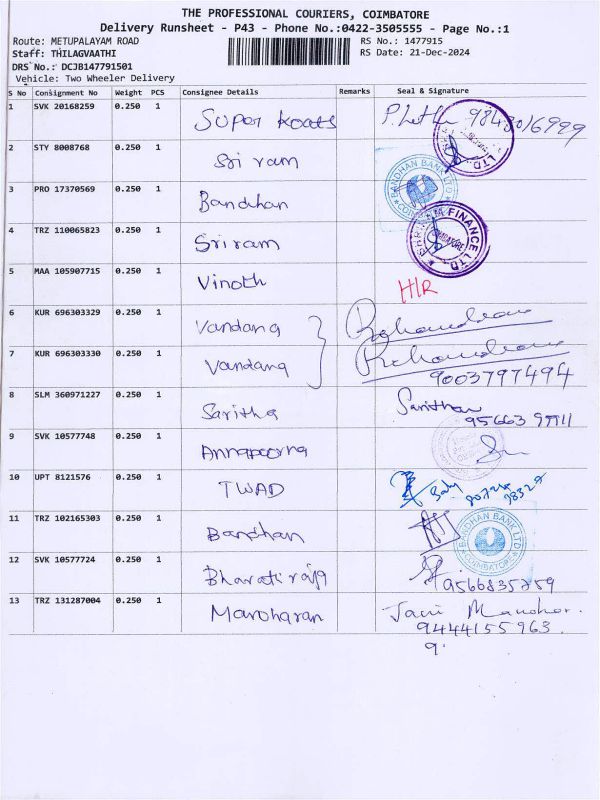 THE PROFESSIONAL COURIERS, COIMBATORE
Delivery Runsheet - P43 - Phone No.:0422-3505555 - Page No.:1
Route: METUPALAYAM ROAD RS No.: 1477915
Staff: THILAGVAATHI RS Date: 21-Dec-2024
DRS No.: DCJB147791501
Vehicle: Two Wheeler Delivery
S No Consignment No Weight PCS Consignee Details Remarks Seal & Signature
1 SVK 20168259 0.250 1 Super Koats
2 STY 8008768 0.250 1 Sri ram
BANDHAN BANK LTD
3 PRO 17370569 0.250 1 Bandhan
4 TRZ 110065823 0.250 1 Sriram
FINANCE LTD
COIMBATORE
5 MAA 105907715 0.250 1 Vinoth H/R
6 KUR 696303329 0.250 1 Vandana
7 KUR 696303330 0.250 1 Vandana
9003797494
8 SLM 360971227 0.250 1 Saritha
9 SVK 10577748 0.250 1 Annapoorna
10 UPT 8121576 0.250 1 TWAD
11 TRZ 102165303 0.250 1 Bandhan
BANDHAN BANK LTD
COIMBATORE
12 SVK 10577724 0.250 1 Bharati raja
9566835759
13 TRZ 131287004 0.250 1 Manoharan
9444155963
9